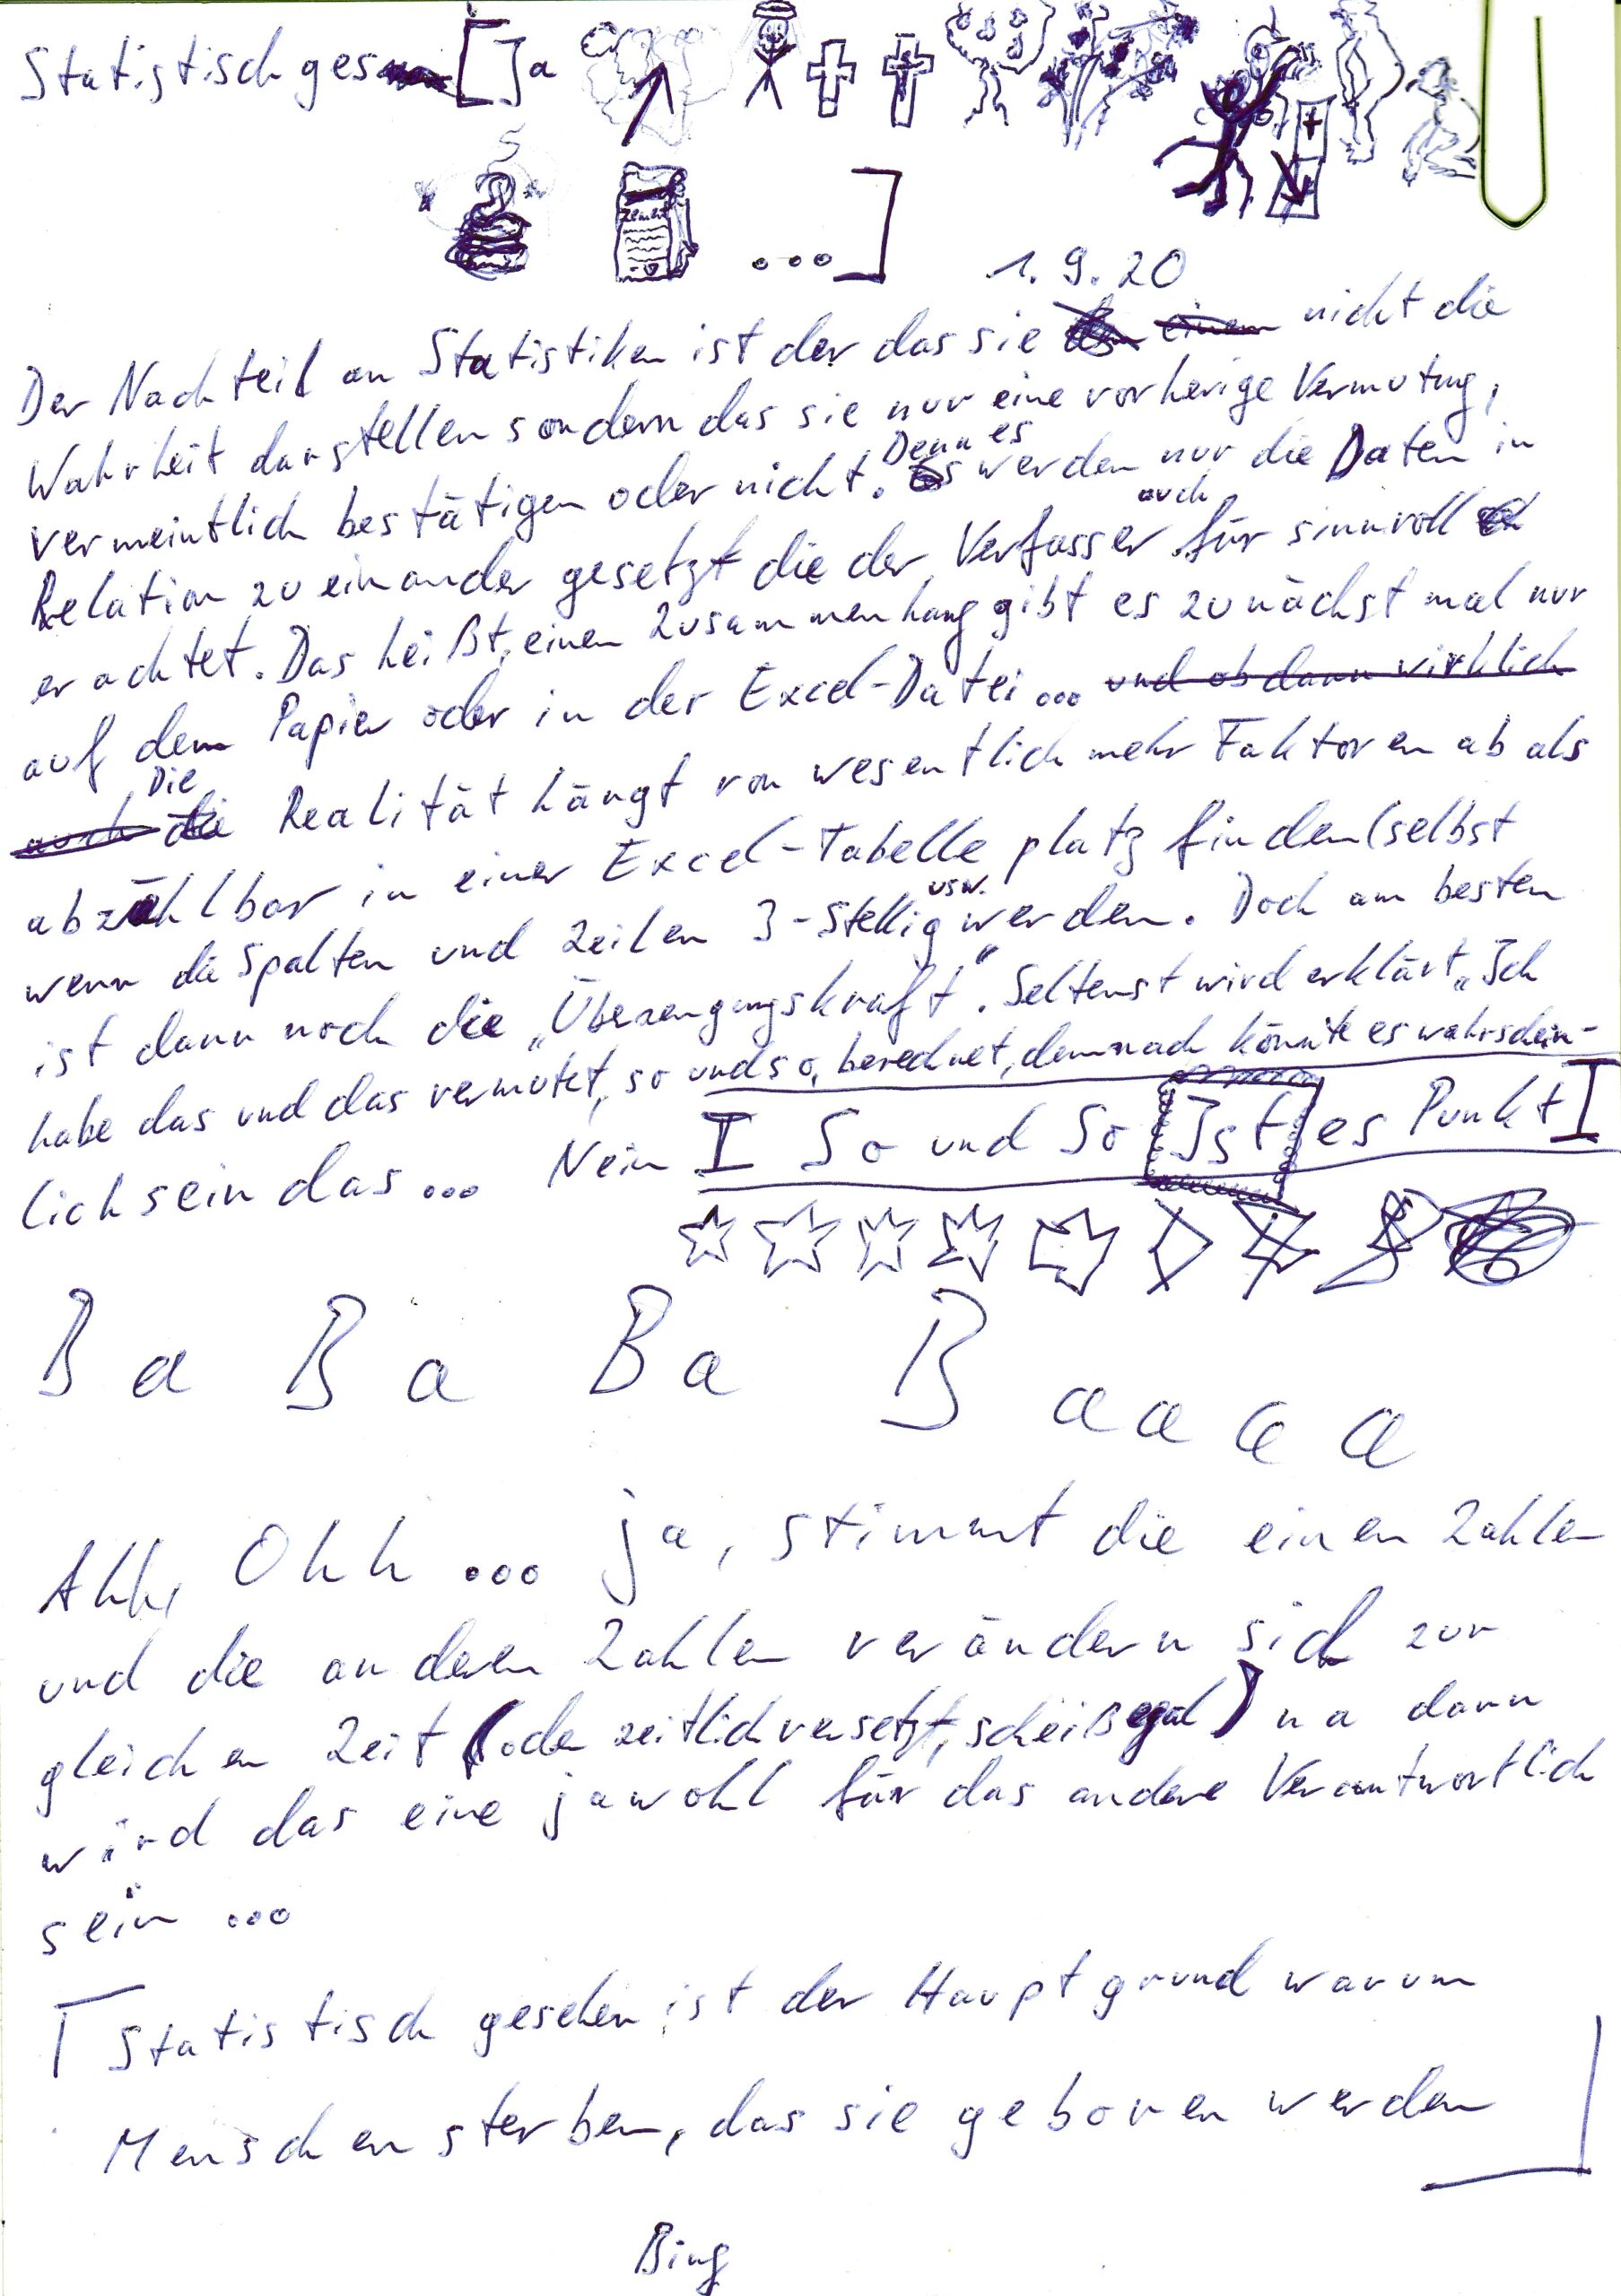 Statistisch ges [Ja
... ]
1.9.20
Der Nachteil an Statistiken ist der das sie nicht die
Wahrheit darstellen sondern das sie nur eine vorherige Vermutung,
vermeintlich bestätigen oder nicht. Denn es werden nur die Daten in
Relation zu einander gesetzt die der Verfasser auch für sinnvoll
erachtet. Das heißt, einen Zusammenhang gibt es zunächst mal nur
auf dem Papier oder in der Excel-Datei... und ob dann wirklich
auch die Die Realität hängt von wesentlich mehr Faktoren ab als
abzählbar in einer Excel-Tabelle platz finden (selbst
wenn die Spalten und Zeilen 3-Stellig usw. werden. Doch am besten
ist dann noch die „Überzeugungskraft". Seltenst wird erklärt „Ich
habe das und das vermutet, so und so, berechnet, demnach könnte es wahrschein-
lich sein das... Nein I So und So Ist es Punkt I
B a B a B a B a a a a
Ahh, Ohh ... ja, stimmt die einen Zahlen
und die anderen Zahlen verändern sich zur
gleichen Zeit (oder zeitlich versetzt, scheißegal) na dann
wird das eine jawohl für das andere Verantwortlich
sein ...
Statistisch gesehen ist der Hauptgrund warum
Menschen sterben, das sie geboren werden
Bing